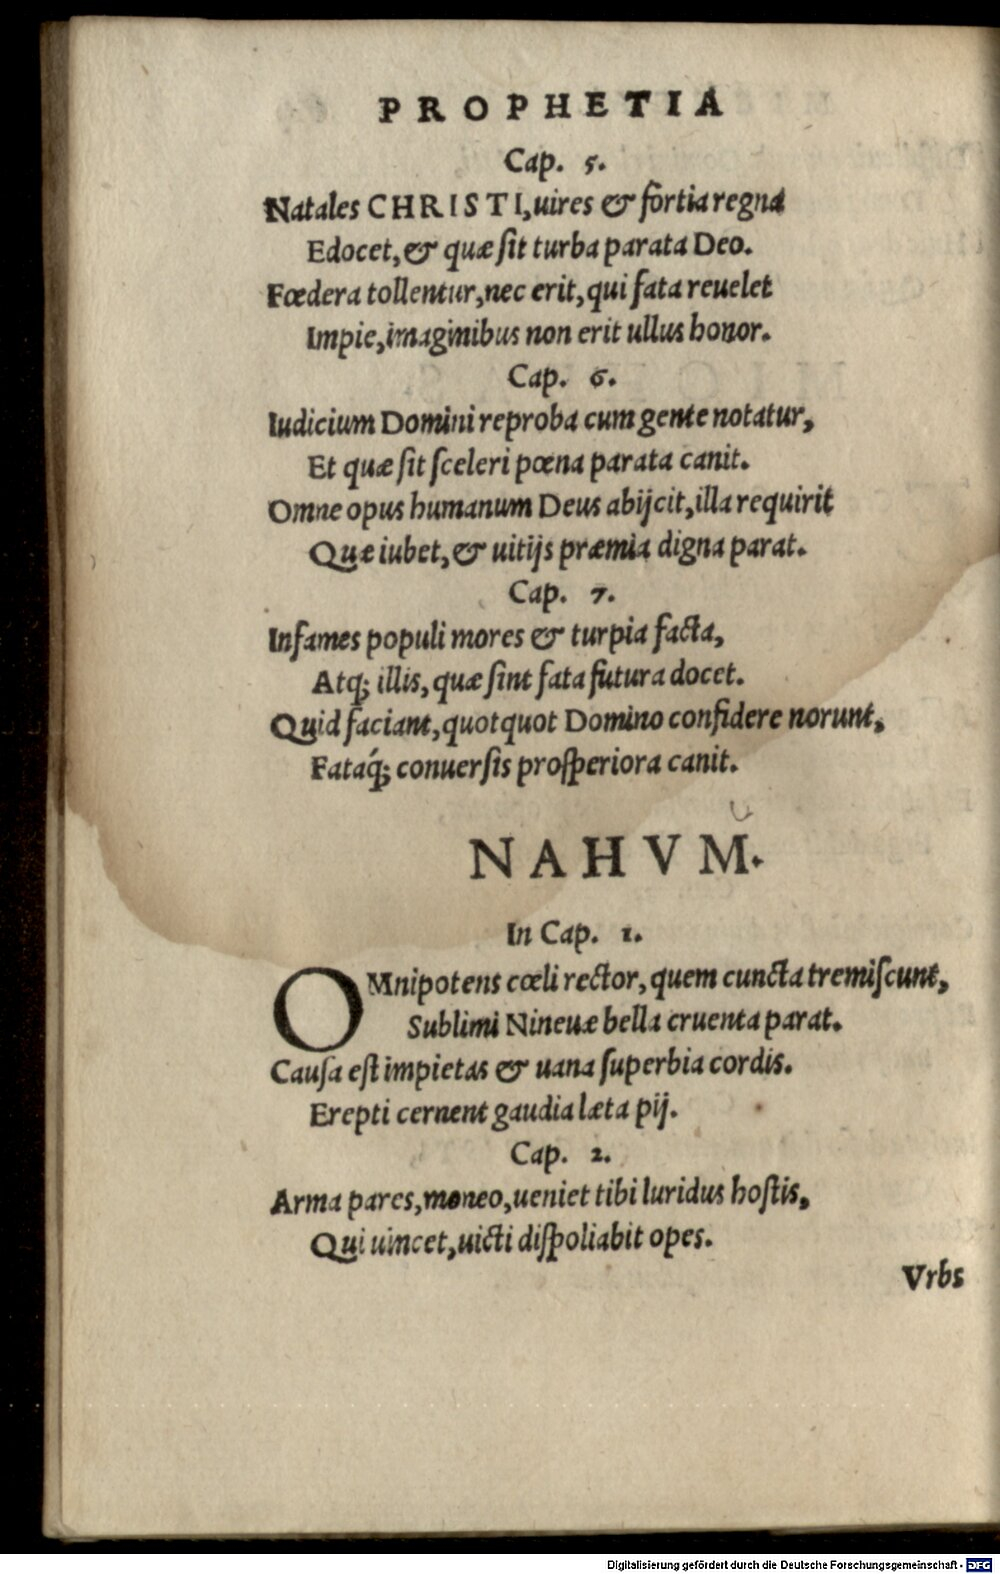 PROPHETIA
Cap. 5.
Natales CHRISTI, uires & fortia regna
Edocet, & quæ ſit turba parata Deo.
Fœdera tollentur, nec erit, qui fata reuelet
Impie, imaginibus non erit ullus honor.
Cap. 6.
Iudicium Domini reproba cum gente notatur,
Et quæ ſit ſceleri pœna parata canit.
Omne opus humanum Deus abijcit, illa requirit
Quæ iubet, & uitijs præmia digna parat.
Cap. 7.
Infames populi mores & turpia facta,
Atq; illis, quæ ſint fata futura docet.
Quid faciant, quotquot Domino confidere norunt,
Fataq́; conuerſis proſperiora canit.
NAHVM.
In Cap. 1.
OMnipotens cœli rector, quem cuncta tremiſcunt,
Sublimi Nineuæ bella cruenta parat.
Cauſa eſt impietas & uana ſuperbia cordis.
Erepti cernent gaudia læta pij.
Cap. 2.
Arma pares, moneo, ueniet tibi luridus hoſtis,
Qui uincet, uicti diſpoliabit opes.
Vrbs
Digitalisierung gefördert durch die Deutsche Forschungsgemeinschaft - DFG